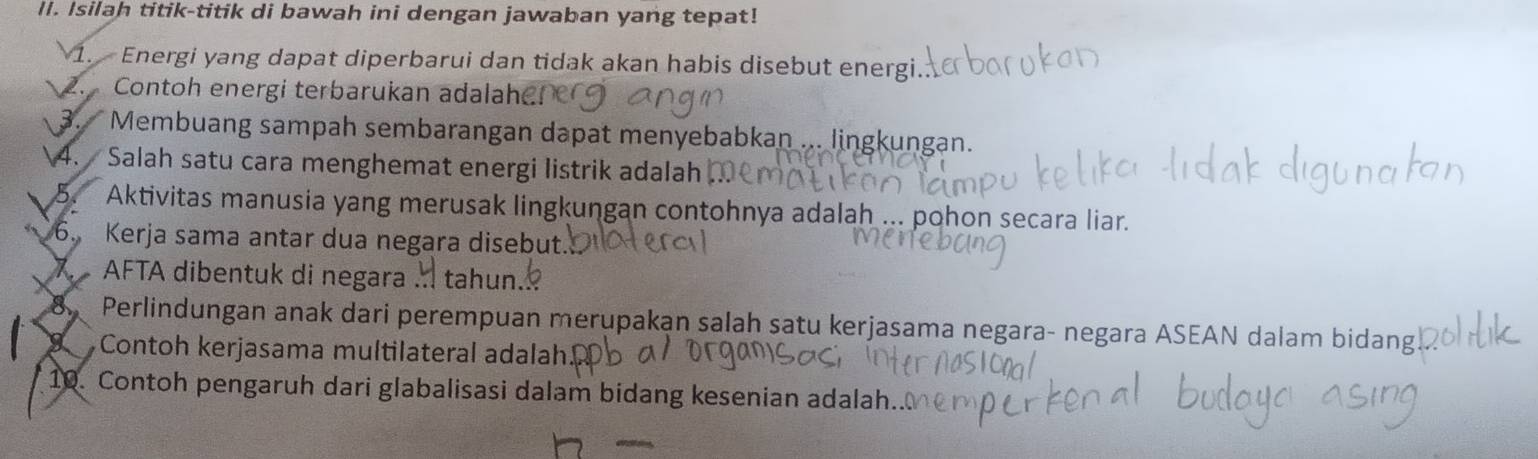 II. Isilah titik-titik di bawah ini dengan jawaban yang tepat!
1. Energi yang dapat diperbarui dan tidak akan habis disebut energi...terbarukan
2. Contoh energi terbarukan adalah... energ angin
3. Membuang sampah sembarangan dapat menyebabkan ... lingkungan. mencemari
4. Salah satu cara menghemat energi listrik adalah ... mematikan lampu ketika tidak digunakan
5. Aktivitas manusia yang merusak lingkungan contohnya adalah ... pohon secara liar. menebang
6. Kerja sama antar dua negara disebut... bilateral
7. AFTA dibentuk di negara ... 4 tahun... 6
8. Perlindungan anak dari perempuan merupakan salah satu kerjasama negara- negara ASEAN dalam bidang... politik
9. Contoh kerjasama multilateral adalah... ppb organisasi internasional
10. Contoh pengaruh dari glabalisasi dalam bidang kesenian adalah... memperkenal budaya asing